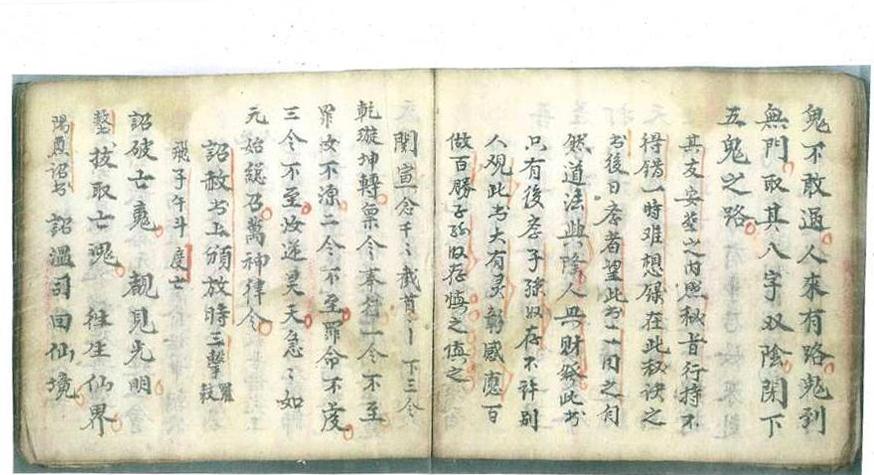 鬼不敢過人來有路鬼到
無門取其八字双陰閉下
五鬼之路
其友安葬之内照秘旨行持不
得錯一時难想保在此秘诀之
书後日孝者望此书一内之句
然道法与陰人与财發此书
只有後孝子孫收存不許别
人观此书大有灵驗感應百
做百勝子孙收存慎之慎之
関宣一念千〻截首〻丨下三令
乾璇坤轉禀令奉行一令不至
罪汝不深二令不至罪命不度
三令不至汝逆昊天急〻如
元始總召萬神律令
詔赦书上頒放時三擊羅鼓
飛子午斗度亡
詔破亡䰟靚見光明
整拔取亡魂徃生仙界
陽薦詔书詔溫司回仙境